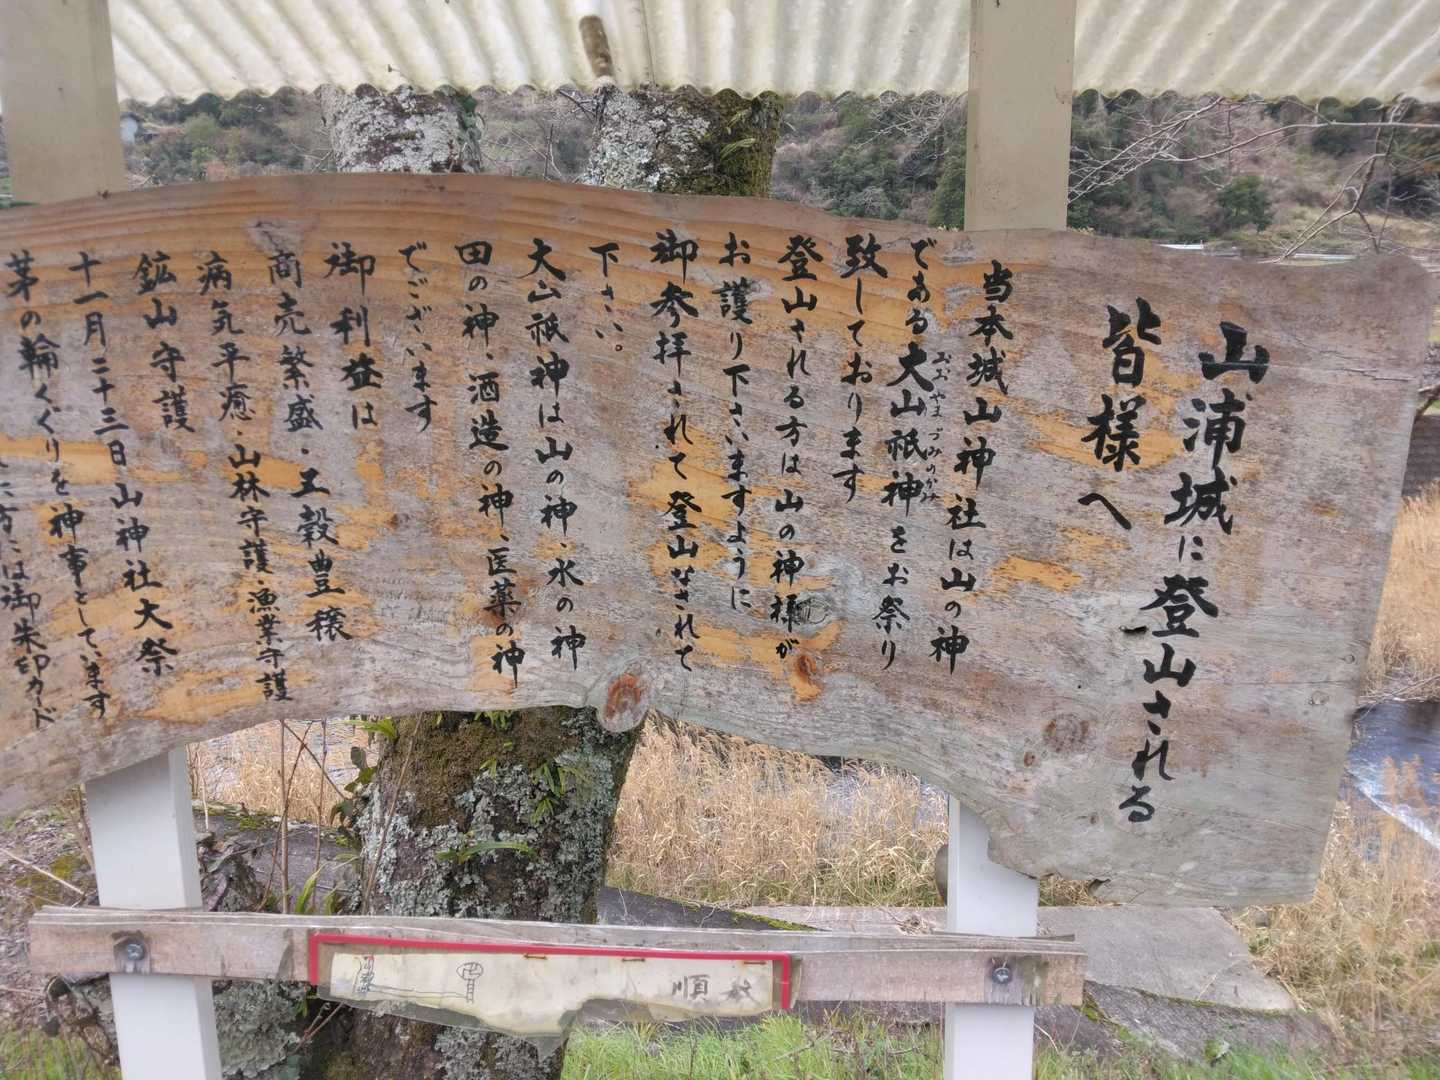 山浦城に登山される
皆様へ
当本城山神社は山の神
である大山祇神をお祭り
おおやまづみのかみ
致しております
登山される方は山の神様が
お護り下さいますように
御参拝されて登山なされて
下さい。
大山祇神は山の神・水の神
田の神・酒造の神・医薬の神
でございます
御利益は
商売繁盛・五穀豊穣
病気平癒・山林守護・漁業守護
鉱山守護
十一月二十三日山神社大祭
茅の輪くぐりを神事としています
方には御朱印カード
順